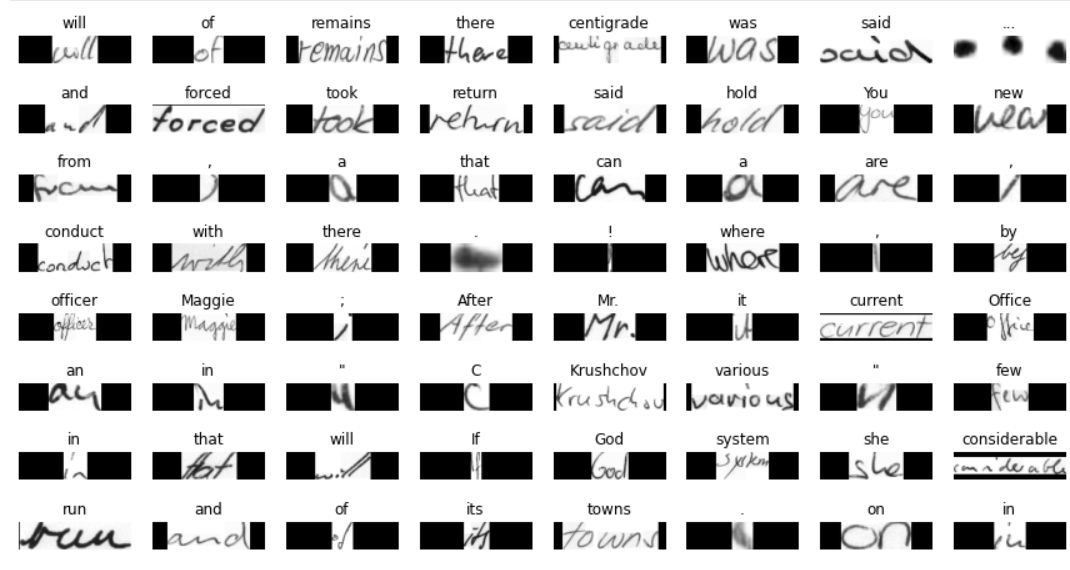 will of remains there centigrade was said ...
will of remains there centigrade was said ...
and forced took return said hold You new
and forced took return said hold You new
from , a that can a are ,
from , a that can a are ,
conduct with there . ! where , by
conduct with there . ! where , by
officer Maggie ; After Mr. it current Office
officer Maggie ; After Mr. it current Office
an in " C Krushchov various " few
an in " C Krushchov various " few
in that will If God system she considerable
in that will If God system she considerable
run and of its towns . on in
run and of its towns . on in